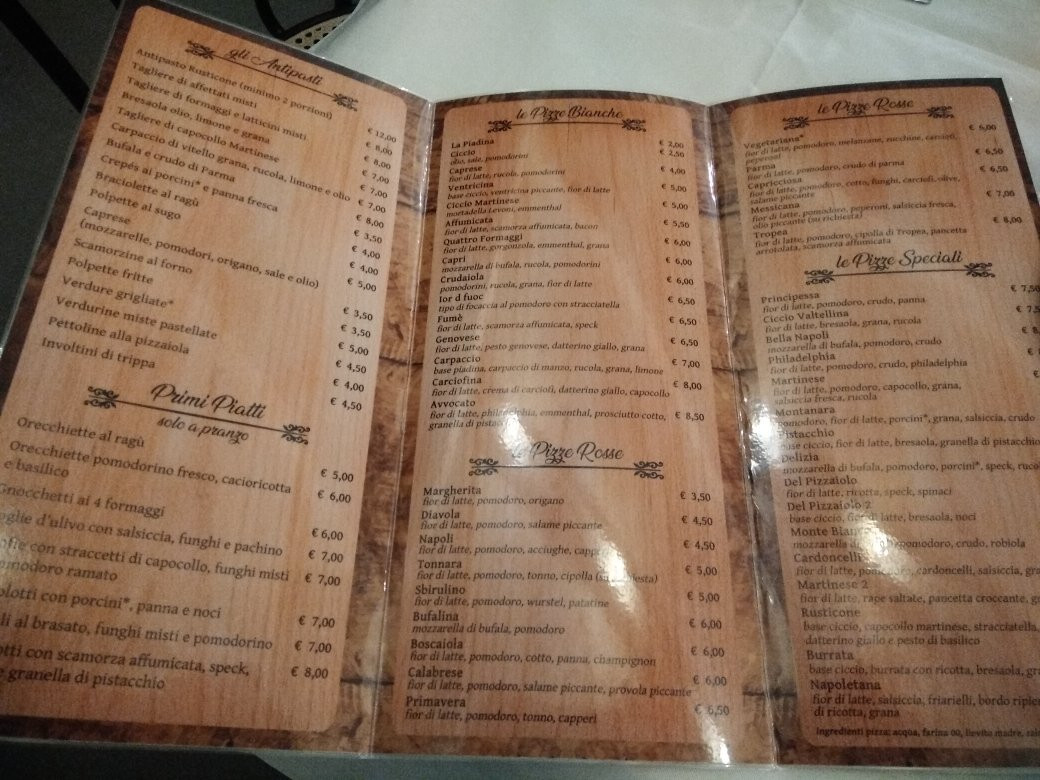 gli Antipasti
Antipasto Rusticone (minimo 2 porzioni) € 12,00
Tagliere di affettati misti € 8,00
Tagliere di formaggi e latticini misti € 8,00
Bresaola olio, limone e grana € 7,00
Tagliere di capocollo Martinese € 7,00
Carpaccio di vitello grana, rucola, limone e olio € 7,00
Bufala e crudo di Parma € 8,00
Crepés ai porcini* e panna fresca € 3,50
Braciolette al ragù € 4,00
Polpette al sugo € 4,00
Caprese € 5,00
(mozzarelle, pomodori, origano, sale e olio)
Scamorzine al forno € 3,50
Polpette fritte € 3,50
Verdure grigliate* € 5,00
Verdurine miste pastellate € 4,50
Pettoline alla pizzaiola € 4,00
Involtini di trippa € 4,50
Primi Piatti
solo a pranzo
Orecchiette al ragù € 5,00
Orecchiette pomodorino fresco, cacioricotta € 6,00
e basilico
Gnocchetti ai 4 formaggi € 6,00
oglie d'ulivo con salsiccia, funghi e pachino € 7,00
con straccetti di capocollo, funghi misti € 7,00
omodoro ramato
lotti con porcini*, panna e noci € 7,00
li al brasato, funghi misti e pomodorino € 7,00
otti con scamorza affumicata, speck, € 8,00
granella di pistacchio
le Pizze Bianche
La Piadina € 2,00
Ciccio € 2,50
olio, sale, pomodorini
Caprese € 4,00
fior di latte, rucola, pomodorini
Ventricina € 5,00
base ciccio, ventricina piccante, fior di latte
Ciccio Martinese € 5,00
mortadella Levoni, emmenthal
Affumicata € 5,50
fior di latte, scamorza affumicata, bacon
Quattro Formaggi € 6,00
fior di latte, gorgonzola, emmenthal, grana
Capri € 6,00
mozzarella di bufala, rucola, pomodorini
Crudaiola € 6,00
pomodorini, rucola, grana, fior di latte
Ior d fuoc € 6,50
tipo di focaccia al pomodoro con stracciatella
Fumè € 6,50
fior di latte, scamorza affumicata, speck
Genovese € 6,50
fior di latte, pesto genovese, datterino giallo, grana
Carpaccio € 7,00
base piadina, carpuccio di manzo, rucola, grana, limone
Carciofina € 8,00
fior di latte, crema di carciofi, datterino giallo, capocollo
Avvocato € 8,50
fior di latte, philadelphia, emmenthal, prosciutto cotto,
granella di pistacchio
le Pizze Rosse
Margherita € 3,50
fior di latte, pomodoro, origano
Diavola € 4,50
fior di latte, pomodoro, salame piccante
Napoli € 4,50
fior di latte, pomodoro, acciughe, capperi
Tonnara € 5,00
fior di latte, pomodoro, tonno, cipolla (su richiesta)
Sbirulino € 5,00
fior di latte, pomodoro, wurstel, patatine
Bufalina € 6,00
mozzarella di bufala, pomodoro
Boscaiola € 6,00
fior di latte, pomodoro, cotto, panna, champignon
Calabrese € 6,00
fior di latte, pomodoro, salame piccante, provola piccante
Primavera € 6,50
fior di latte, pomodoro, tonno, capperi
le Pizze Rosse
Vegetariana* € 6,00
fior di latte, pomodoro, melanzane, zucchine, carciofi,
peperoni
Parma € 6,50
fior di latte, pomodoro, crudo di parma
Capricciosa € 6,50
fior di latte, pomodoro, cotto, funghi, carciofi, olive,
salame piccante
Messicana € 7,00
fior di latte, pomodoro, peperoni, salsiccia fresca,
olio piccante (su richiesta)
Tropea € 8,00
fior di latte, pomodoro, cipolla di Tropea, pancetta
arrotolata, scamorza affumicata
le Pizze Speciali
Principessa € 7,50
fior di latte, pomodoro, crudo, panna
Ciccio Valtellina € 7,5
fior di latte, bresaola, grana, rucola
Bella Napoli € 8,
mozzarella di bufala, pomodoro, crudo
Philadelphia €
fior di latte, pomodoro, crudo, philadelphia
Martinese €
fior di latte, pomodoro, capocollo, grana,
salsiccia fresca, rucola
Montanara
fior di latte, porcini*, grana, salsiccia, crudo
Pistacchio
base ciccio, fior di latte, bresaola, granella di pistacchio
Delizia
mozzarella di bufala, pomodoro, porcini*, speck, rucol
Del Pizzaiolo
fior di latte, ricotta, speck, spinaci
Del Pizzaiolo 2
base ciccio, fior di latte, bresaola, noci
Monte Bian
mozzarella di pomodoro, crudo, robiola
Cardoncelli
fior di latte, cardoncelli, salsiccia, gra
Martinese 2
fior di latte, rape saltate, pancetta croccante, gr
Rusticone
base ciccio, capocollo martinese, stracciatella,
datterino giallo e pesto di basilico
Burrata
base ciccio, burrata con ricotta, bresaola, gra
Napoletana
fior di latte, salsiccia, friarielli, bordo ripien
di ricotta, grana
Ingredienti pizza: acqua, farina 00, lievito madre, sale